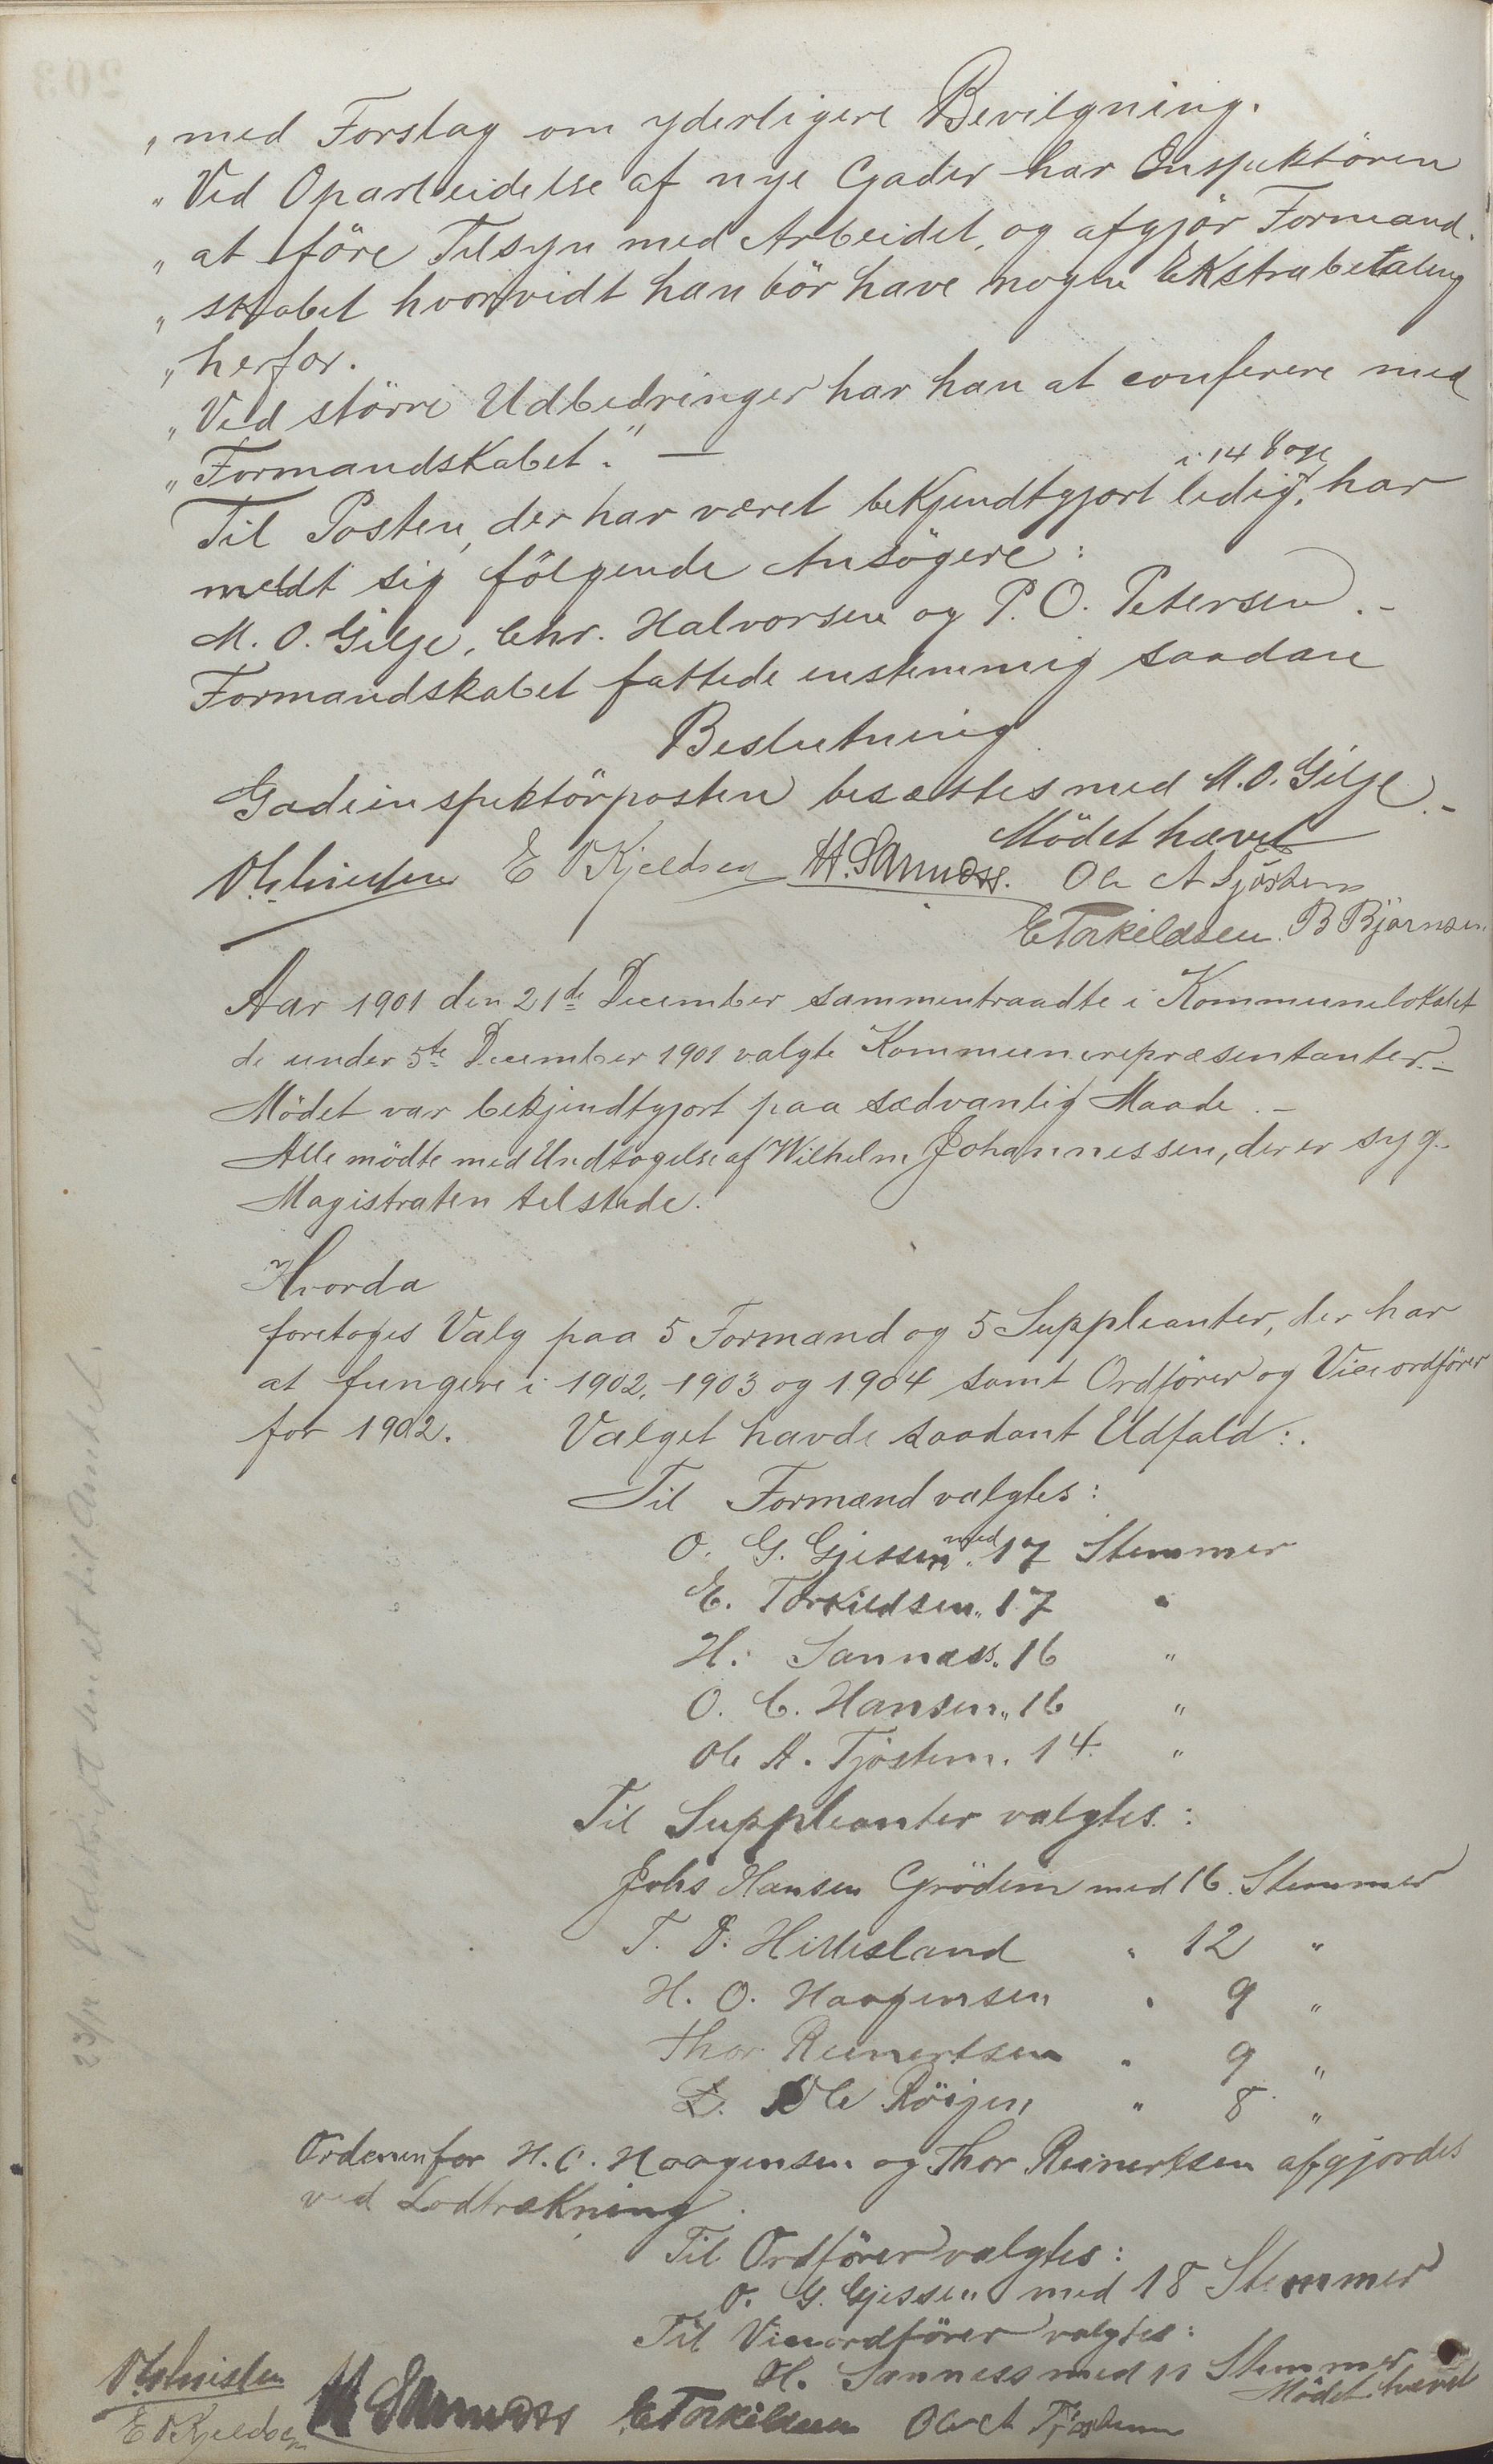 „ med Forslag om yderligere Bevilgning.
„ Ved Oparbeidelse af nye Gader har Inspektören
„ at före Tilsyn med Arbeidet, og afgjör Formand-
„ skabet hvorvidt han bör have nogen Ekstrabetaling
„ herfor.
„ Ved större Udbedringer har han at conferere med
„ Formandskabet." —
i 14 Dage
Til Posten, der har været bekjendtgjort ledig, har
meldt sig fölgende Ansögere:
M. O. Gilje, Chr. Halvorsen og P. O. Petersen. -
Formandskabet fattede enstemmig saadan
Beslutning
Gadeinspektörposten besættes med M. O. Gilje. -
Mödet hævet
E O Kjeldsen H. Sannæss. Ole A Tjöstem
E Torkildsen. B Björnsen
Aar 1901 den 21de December sammentraadte i Kommunelokalet
de under 5te December 1901 valgte Kommunerepræsentanter. -
Mödet var bekjendtgjort paa sædvanlig Maade. -
Alle mödte med Undtagelse af Wilhelm Johannessen, der er syg. -
Magistraten tilstede.
Hvorda
foretoges Valg paa 5 Formænd og 5 Suppleanter, der har
at fungere i 1902, 1903 og 1904 samt Ordförer og Viceordförer
for 1902. Valget havde saadant Udfald:.
Til Formænd valgtes:
O. G. Gjessen med 17 Stemmer
E. Torkildsen „ 17 „
H. Sannæss „ 16 „
O. C. Hansen „ 16 „
Ole A. Tjöstem „ 14 „
Til Suppleanter valgtes:
Johs Hansen Grödem med 16 Stemmer
T. O. Hillesland „ 12 „
H. O. Haagensen „ 9 „
Thor Reinertsen „ 9 „
Ole Röigen „ 8 „
Ordenen for H. O. Haagensen og Thor Reinertsen afgjordes
ved Lodtrækning.
Til Ordförer valgtes:
O. G. Gjessen med 18 Stemmer
Til Viceordförer valgtes:
H. Sannæss med 11 Stemmer
Mödet hævet
H Sannæss E Torkildsen Ole A Tjöstem
E O Kjeldsen
23/12 Udskrift sendt til Amtet.